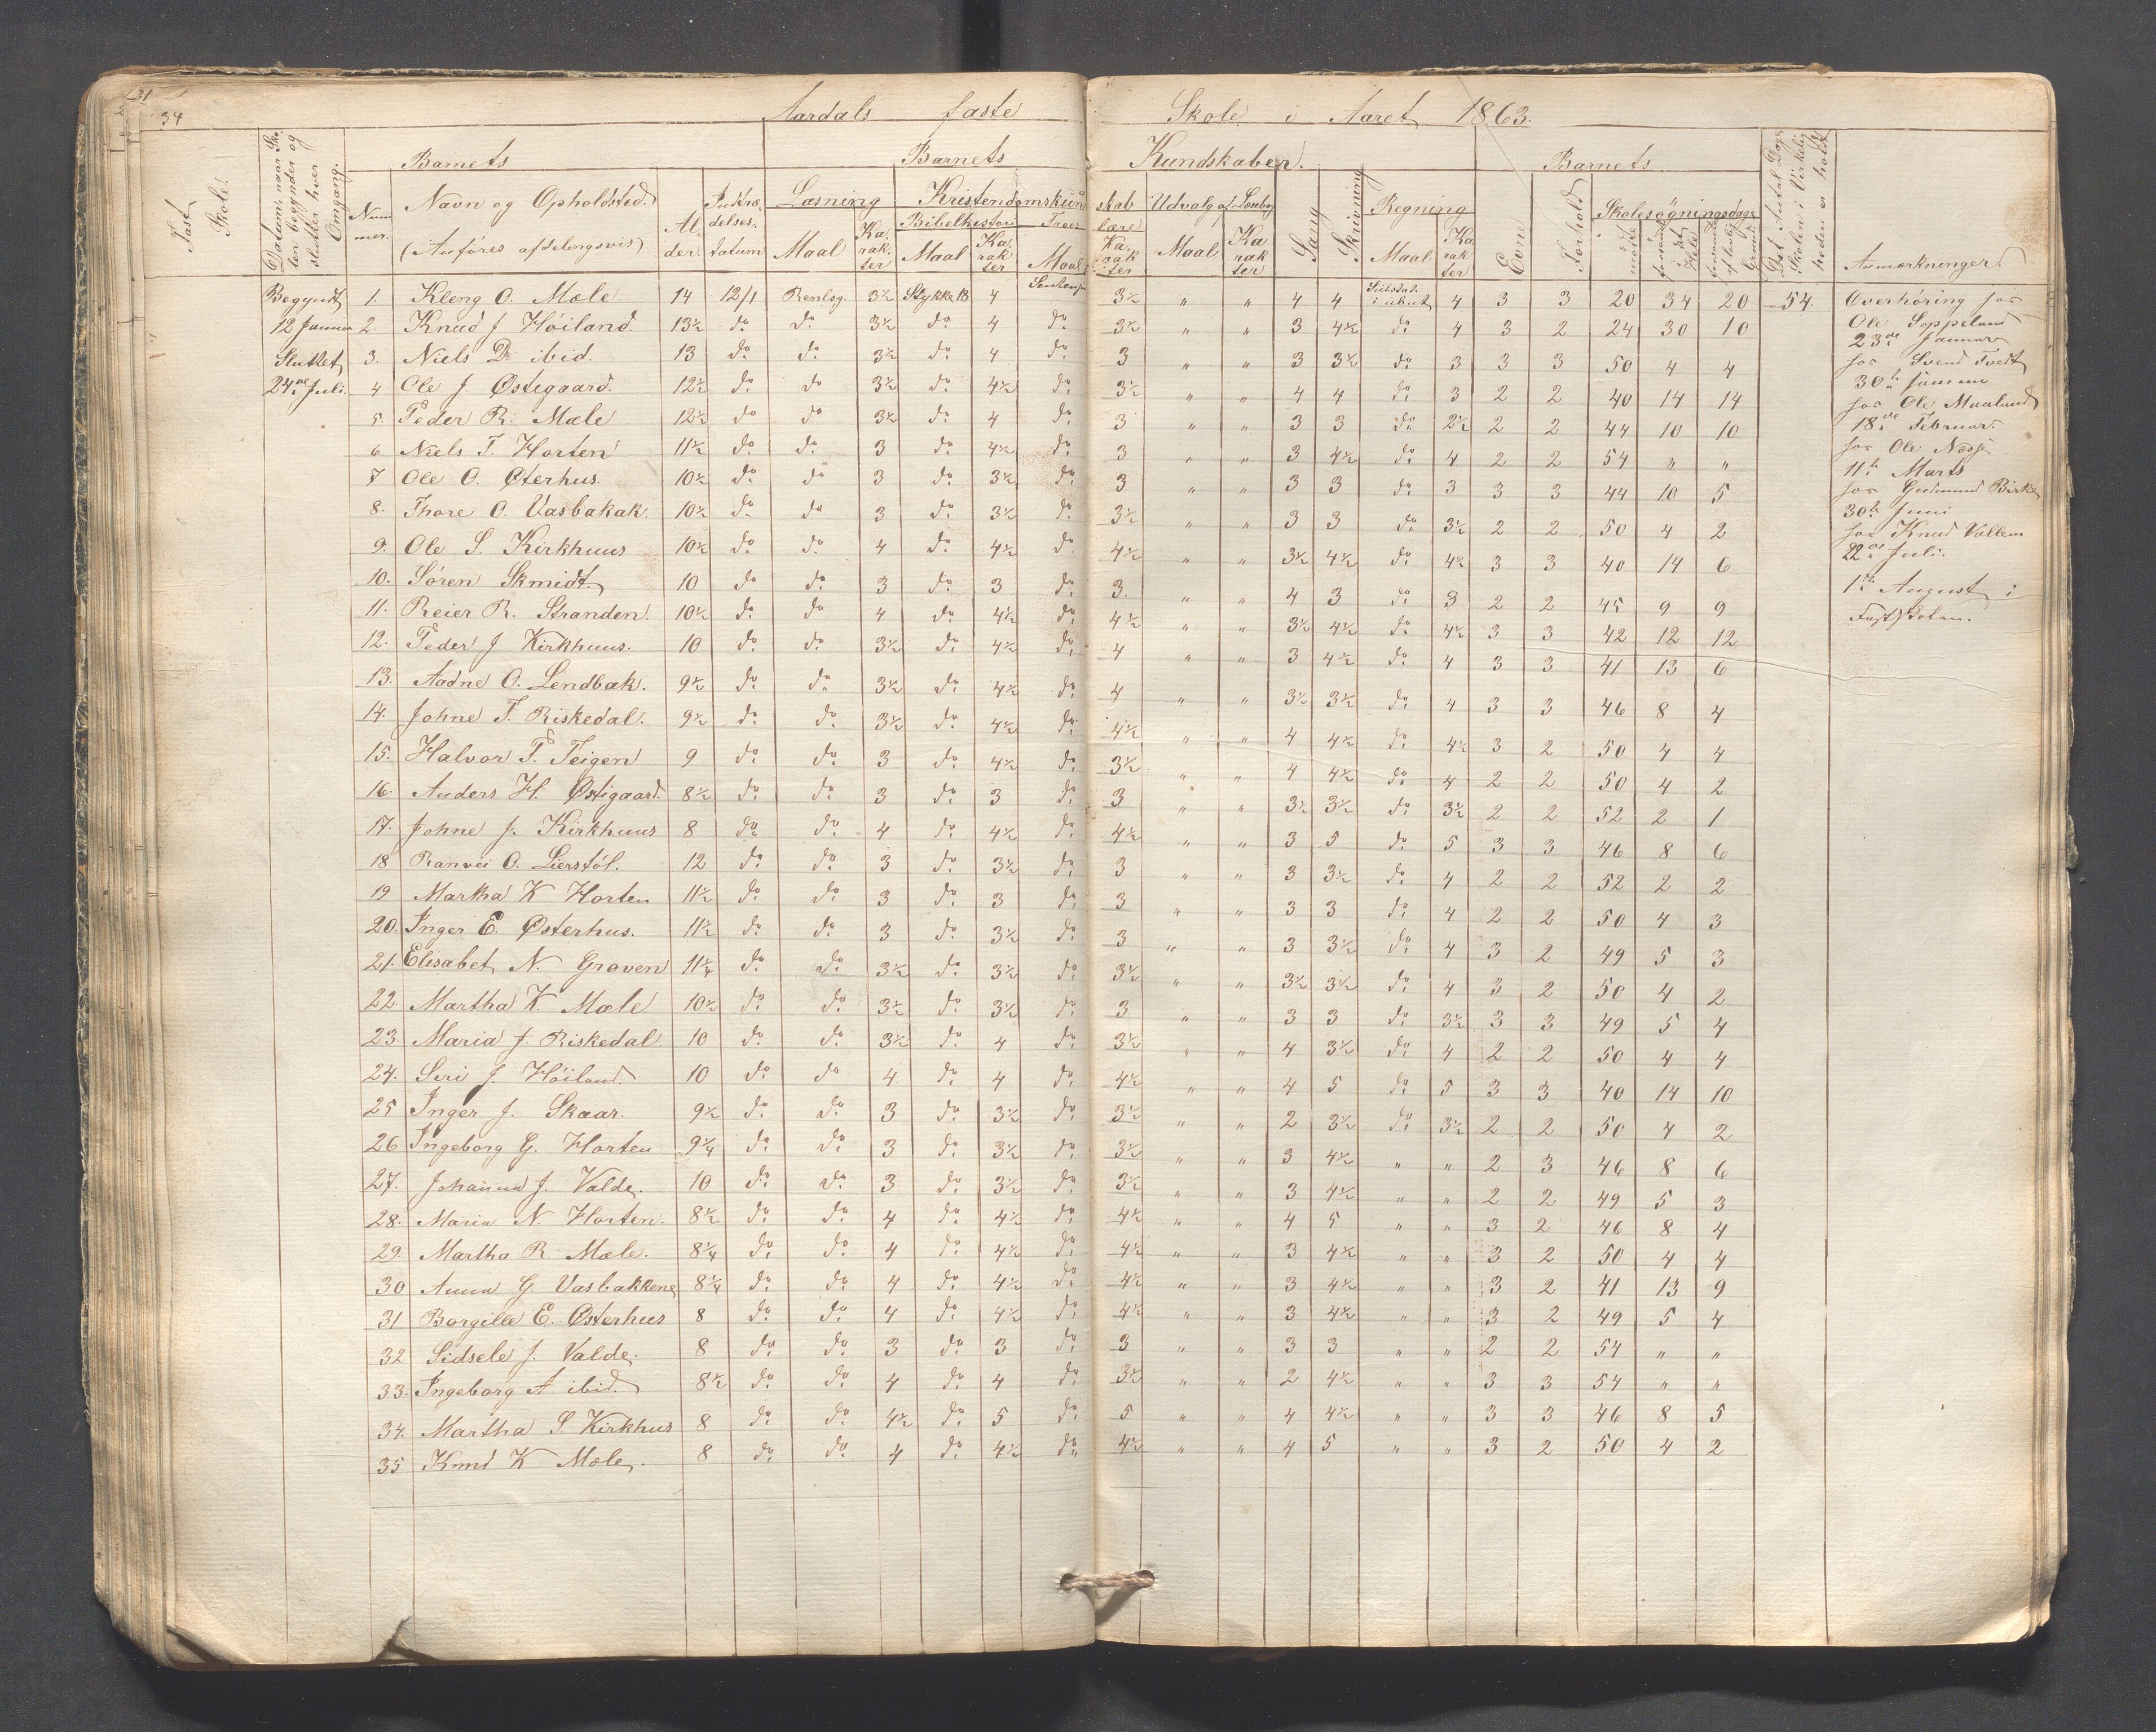 34
Aardals faste Skole i Aaret 1863.
Fast Skole.
Datum, naar Skolen begynder og slutter hver Omgang.
Barnets
Nummer.
Navn og Opholdsted.
(Anføres afdelingsvis)
Alder.
Indtrædelsesdatum
Barnets Kundskaber.
Læsning
Maal
Karakter
Kristendomskundskab
Bibelhistorie
Maal
Karakter
Troeslære
Maal
Karakter
Udvalg af Læsebog
Maal
Karakter
Sang
Skrivning
Regning
Maal
Karakter
Barnets
Evne
Forhold
Skolesøgningsdage
mødte
forsømte i det Hele
Det Antal Dage Skolen i Virkeligheden er holdt
Anmærkninger.
Begyndt 1. Kleng O. Mæle. 14 12/1 Renlæg. 3½ Stykke 18 4 3½ " " 4 4 4 3 3 20 34 20 54.
12 Januar 2. Knud J Høiland. 13½ do do 3½ do 4 do 3½ " " 3 4½ do 4 3 2 24 30 10
Sluttet 3. Niels D. ibid. 13 do do 3½ do 4 do 3 " " 3 3½ do 3 3 3 50 4 4
24de Juli. 4 Ole J. Østegaard. 12½ do do 3½ do 4½ do 3½ " " 4 4 do 3 2 2 40 14 14
5. Peder R. Mæle 12½ do do 3½ do 4 do 3 " " 3 3 do 2½ 2 2 44 10 10
6 Niels T. Horten 11½ do do 3 do 4½ do 3 " " 3 4½ do 4 2 2 54 " "
7 Ole O. Øterhus. 10½ do do 3 do 3½ do 3 " " 3 3 do 3 3 3 44 10 5
8. Thore O. Vasbakak. 10½ do do 3 do 3½ do 3½ " " 3 3 do 3½ 2 2 50 4 2
9. Ole S. Kirkhuus 10½ do do 4 do 4½ do 4½ " " 3½ 4½ do 4½ 3 3 40 14 6
10. Søren Skmidt. 10 do do 3 do 3 do 3. " " 4 3 do 3 2 2 45 9 9
11. Reier R. Stranden. 10½ do do 4 do 4½ do 4½ " " 3½ 4½ do 4½ 3 3 42 12 12
12. Peder J Kirkhuus. 10 do do 3½ do 4½ do 4 " " 3 4½ do 4 3 3 41 13 6
13. Aadne O. Lendbak. 9½ do do 3½ do 4½ do 4 " " 3½ 3½ do 4 3 3 46 8 4
14. Johne T. Riskedal. 9½ do do 3½ do 4½ do 4½ " " 4 4½ do 4½ 3 2 50 4 4
15. Halvor T. Teigen 9 do do 3 do 4½ do 3½ " " 4 4½ do 4 2 2 50 4 2
16. Anders H. Østigaard. 8½ do do 3 do 3 do 3 " " 3½ 3½ do 3½ 2 2 52 2 1
17. Johne J. Kirkhuus 8 do do 4 do 4½ do 4½ " " 3 5 do 5 3 3 46 8 6
18 Ranvei O. Lierstøl. 12 do do 3 do 3½ do 3 " " 3 3½ do 4 2 2 52 2 2
19 Martha K Horten 11½ do do 3 do 3 do 3 " " 3 3 do 4 2 2 50 4 3
20. Inger E. Østerhus. 11½ do do 3 do 3½ do 3 " " 3 3½ do 4 3 2 49 5 3
21. Elisabet N. Graven 11¼ do do 3½ do 3½ do 3½ " " 3½ 3½ do 4 3 2 50 4 2
22. Martha K. Mæle 10½ do do 3½ do 3½ do 3 " " 3 3 do 3½ 3 3 49 5 4
23. Maria J. Riskedal. 10 do do 3½ do 4 do 3½ " " 4 3½ do 4 2 2 50 4 4
24. Siri J. Høiland. 10 do do 4 do 4 do 4½ " " 4 5 do 5 3 3 40 14 10
25 Inger J. Skaar. 9½ do do 3 do 3½ do 3½ " " 2 3½ do 3½ 2 2 50 4 2
26 Ingeborg G. Horten 9¼ do do 3 do 3½ do 3½ " " 3 4½ " " 2 3 46 8 6
27. Johanna J. Valde. 10 do do 3 do 3½ do 3½ " " 3 4½ " " 2 2 49 5 3
28. Maria N. Horten. 8½ do do 4 do 4½ do 4½ " " 4 5 " " 3 2 46 8 4
29. Martha R. Mæle. 8¼ do do 4 do 4½ do 4½ " " 3 4½ " " 3 2 50 4 4
30 Anna G. Vasbakkene 8¼ do do 4 do 4½ do 4½ " " 3 4½ " " 3 2 41 13 9
31 Borgille E. Østerhus 8 do do 4 do 4½ do 4½ " " 3 4½ " " 3 2 49 5 4
32 Sidsele J. Valde. 8 do do 3 do 3 do 3 " " 3 3 " " 2 2 54 " "
33. Ingeborg A ibid. 8½ do do 4 do 4 do 3½ " " 2 4½ " " 3 3 54 " "
34. Martha S. Kirkhus 8 do do 4½ do 5 do 5 " " 4 4½ " " 3 3 46 8 5
35 Knud K Mæle. 8 do do 4 do 4½ do 4½ " " 4 5 " " 3 2 50 4 2
Overhøring for
Ole Soppeland
23de Januar
for Svend Tvedt
30te samme
for Ole Maaland
18de Februar.
for Ole Næsse
11te Marts
for Gudmund Birke
30te Juni
for Knud Vallem
22de Juli.
1ste August i
Fastskolen.